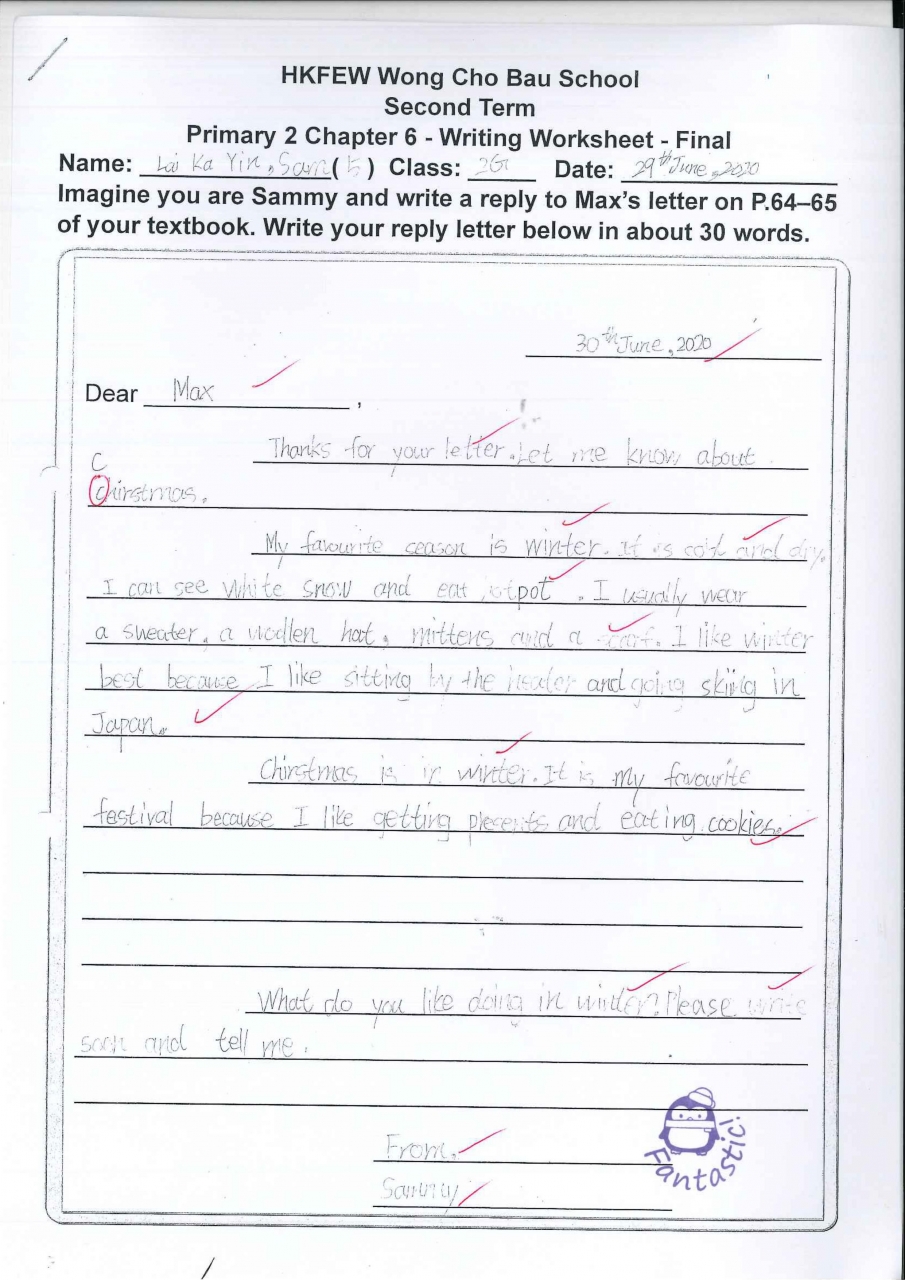 HKFEW Wong Cho Bau School
Second Term
Primary 2 Chapter 6 - Writing Worksheet - Final
Name: Lai Ka Yin, Sam (5) Class: 2G Date: 29th June, 2020
Imagine you are Sammy and write a reply to Max's letter on P.64–65
of your textbook. Write your reply letter below in about 30 words.
30th June, 2020
Dear Max ,
Thanks for your letter. Let me know about
C
chirstmas.
My favourite season is winter. It is cold and dry.
I can see white snow and eat otpot. I usually wear
a sweater, a woolen hat, mittens and a scarf. I like winter
best because I like sitting by the heater and going skiing in
Japan.
Chirstmas is in winter. It is my favourite
festival because I like getting presents and eating cookies.
What do you like doing in winter? Please write
soon and tell me.
From,
Sammy
Fantastic!